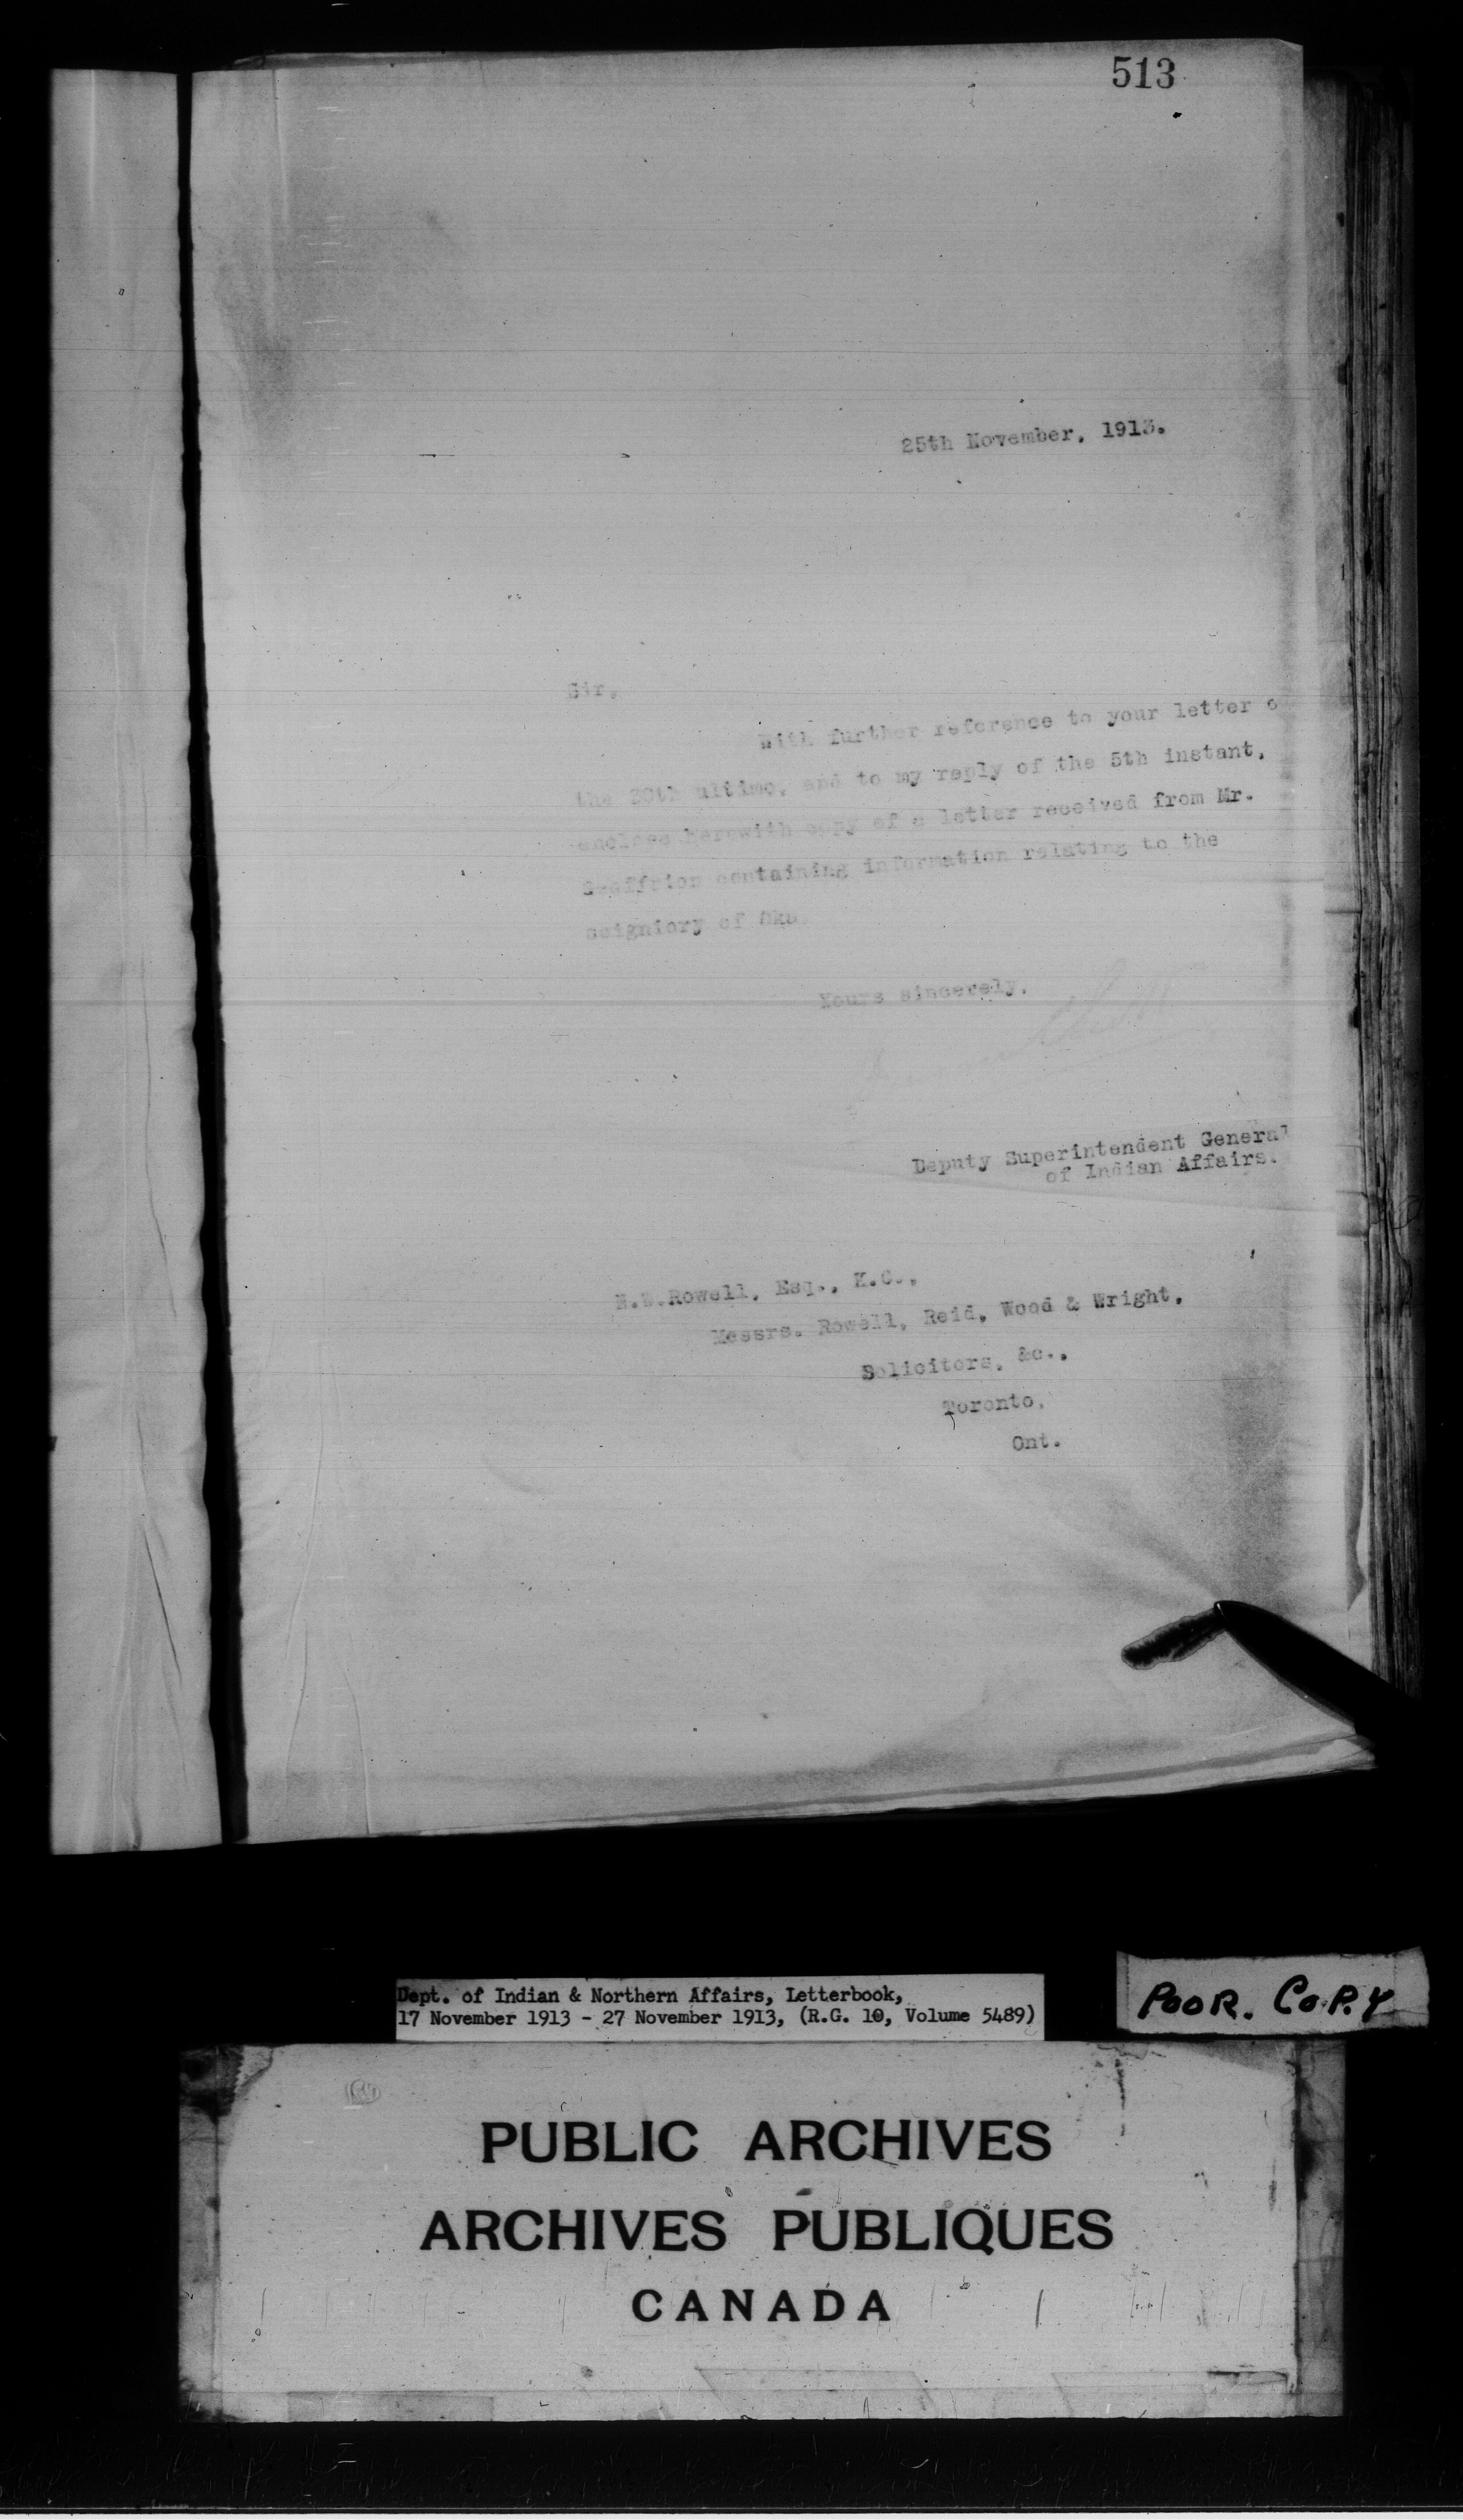 513
25th November, 1913.
Sir,
With further reference to your letter o
the 30th ultimo, and to my reply of the 5th instant,
enclose herewith copy of a letter received from Mr.
containing information relating to the
seigniory of Oka.
Yours sincerely,
Deputy Superintendent General
of Indian Affairs.
N.W.Rowell, Esq., K.C.,
Messrs. Rowell, Reid, Wood & Wright,
Solicitors, &c.,
Toronto,
Ont.
Dept. of Indian & Northern Affairs, Letterbook,
17 November 1913 - 27 November 1913, (R.G. 10, Volume 5489)
POOR. COPY
PUBLIC ARCHIVES
ARCHIVES PUBLIQUES
CANADA